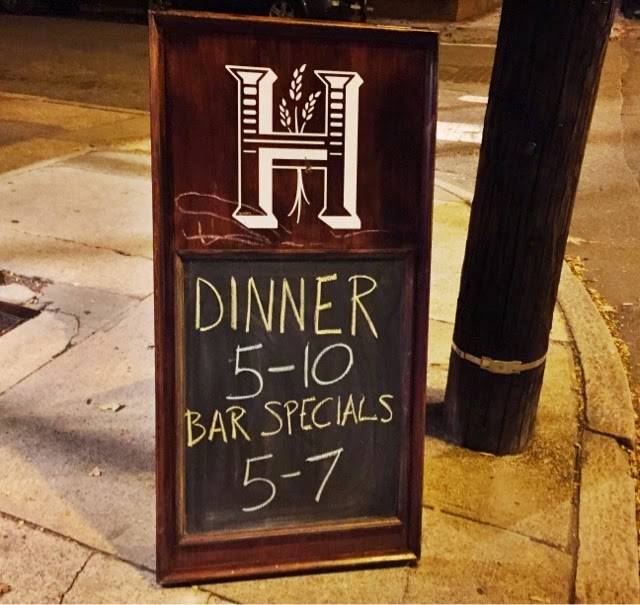 H
DINNER
5-10
BAR SPECIALS
5-7